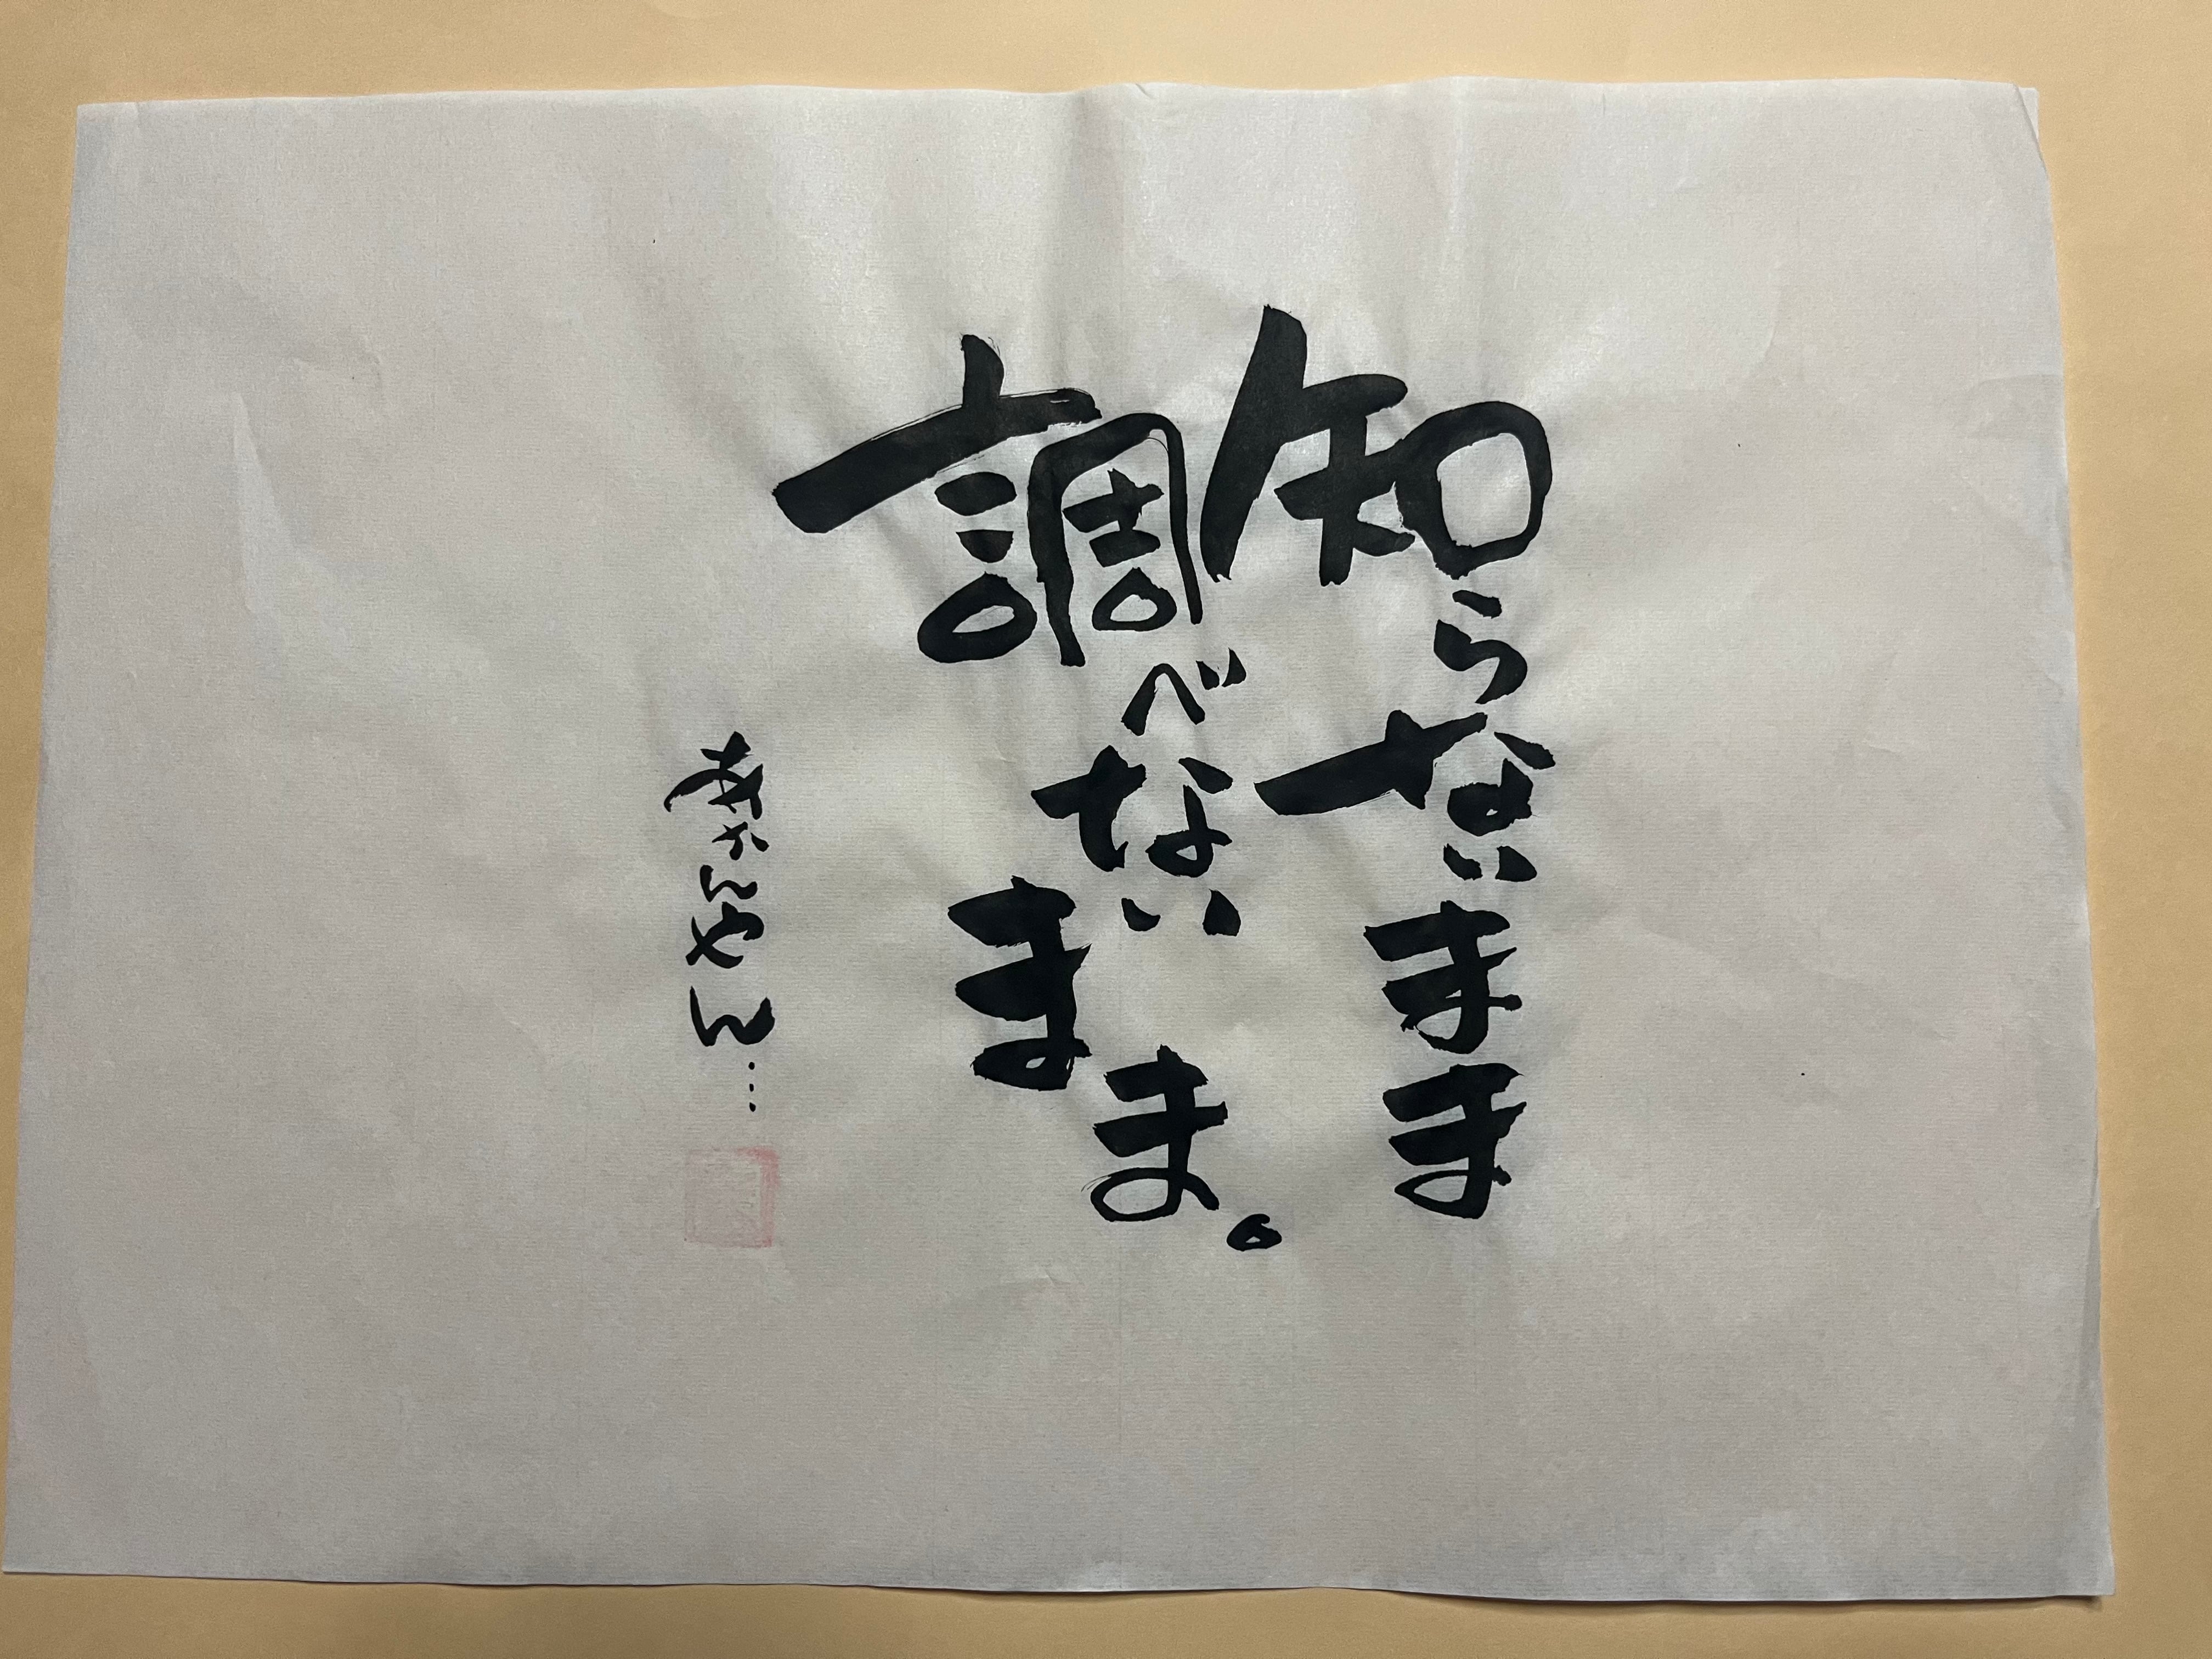 知らないまま
調べないまま。
あかんやん…